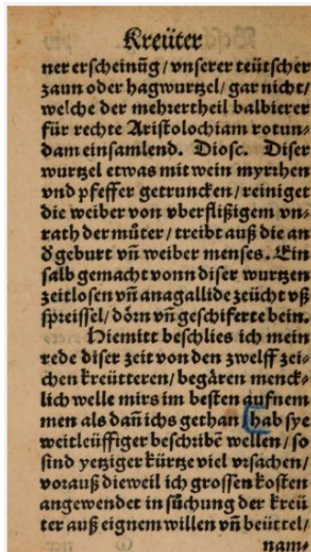 Kreüter
ner erscheinũg / vnserer teütscher
zaun oder hagwurtzel / gar nicht /
welche der mehrertheil balbierer
für rechte Aristolochiam rotun⸗
dam einsamlend. Diosc. Diser
wurtzel etwas mit wein myrrhen
vnd pfeffer getruncken / reiniget
die weiber von vberflißigem vn⸗
rath der můter / treibt auß die an
d̕ geburt vñ weiber menses. Ein
salb gemacht vonn diser wurtzen
zeitlosen vñ anagallide zeücht vß
spreissel / dörn vñ geschiferte bein.
Hiemitt beschlies ich mein
rede diser zeit von den zwelff zei⸗
chen kreütteren / begären menck⸗
lich welle mirs im besten aufnem
men als dañ ichs gethan / hab sye
weitleüffiger beschribẽ wellen / so
sind yetziger kürtze viel vrsachen /
vorauß dieweil ich grossen kosten
angewendet in sůchung der kreü
ter auß eignem willen vñ beüttel /
nam⸗